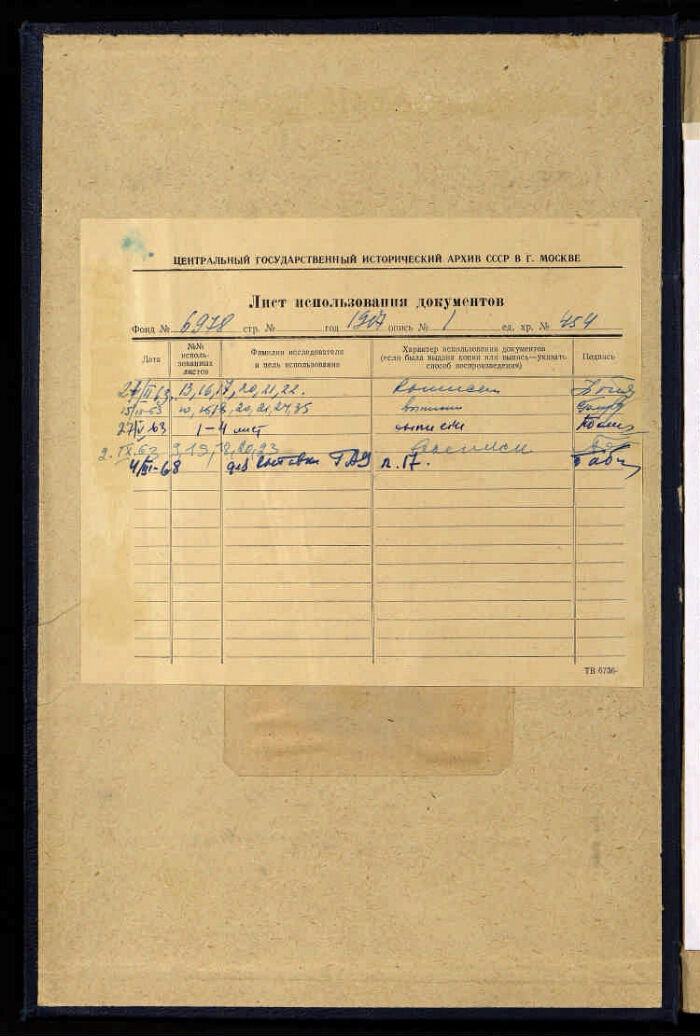 ЦЕНТРАЛЬНЫЙ ГОСУДАРСТВЕННЫЙ ИСТОРИЧЕСКИЙ АРХИВ СССР В Г. МОСКВЕ
Лист использования документов
Фонд № 6978 стр. № год 1907 опись № 1 ед. хр. № 454
Дата
№№ исполь-
зованных
листов
Фамилия исследователя
и цель использования
Характер использования документов
(если была выдана копия или выпись—указать
способ воспроизведения)
Подпись
13, 16, 17, 20, 21, 22.
20, 21, 24, 25
27/V 63 1-4 лист выписки
2. IX. 63 9, 19, 18, 20, 23 выписки
4/III-68 для выставки ГАУ л. 17.
ТВ 6736-